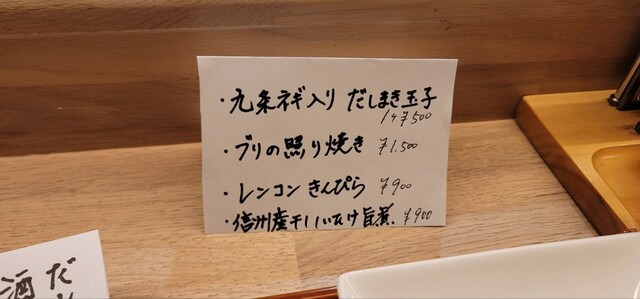 ・九条ネギ入り だしまき玉子
1ケ¥500
・ブリの照り焼き ¥1,500
・レンコン きんぴら ¥900
・信州産干ししいたけ旨煮. ¥900
だし
酒